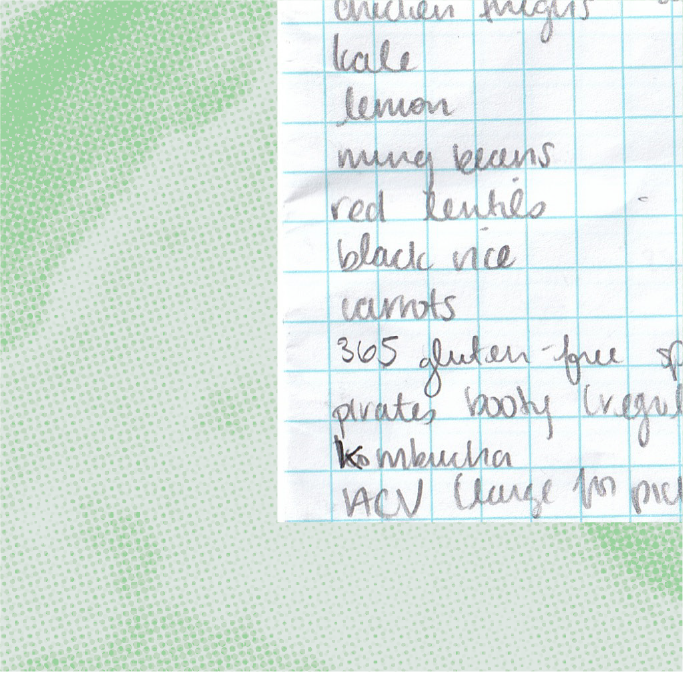 chicken thighs
kale
lemon
mung beans
red lentils
black rice
carrots
365 gluten-free sp
pirates booty (regul
kombucha
ACV (large for pic